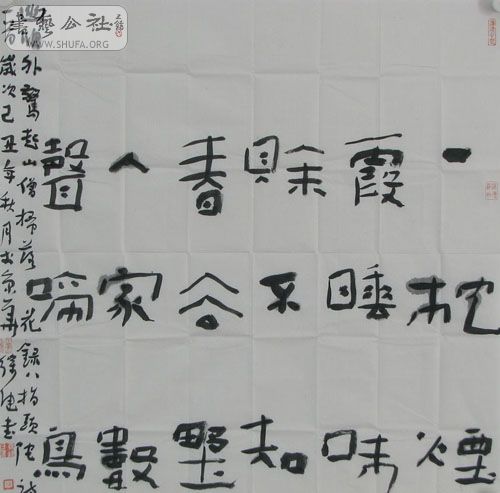 一枕煙
霞睡味
餘不知
春谷墅
人家數
聲啼鳥
外驚起山僧掃落花 錄八指頭陀詩
歲次己丑年秋月於京華
書藝公社
WWW.SHUFA.ORG